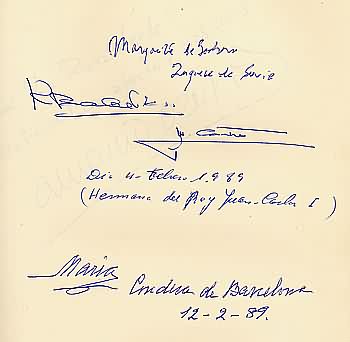 Margarita de Borbon
Duquesa de Soria
Dia 4-Febrero 1.989
(Hermana del Rey Juan-Carlos I)
Maria
Condesa de Barcelona
12-2-89.